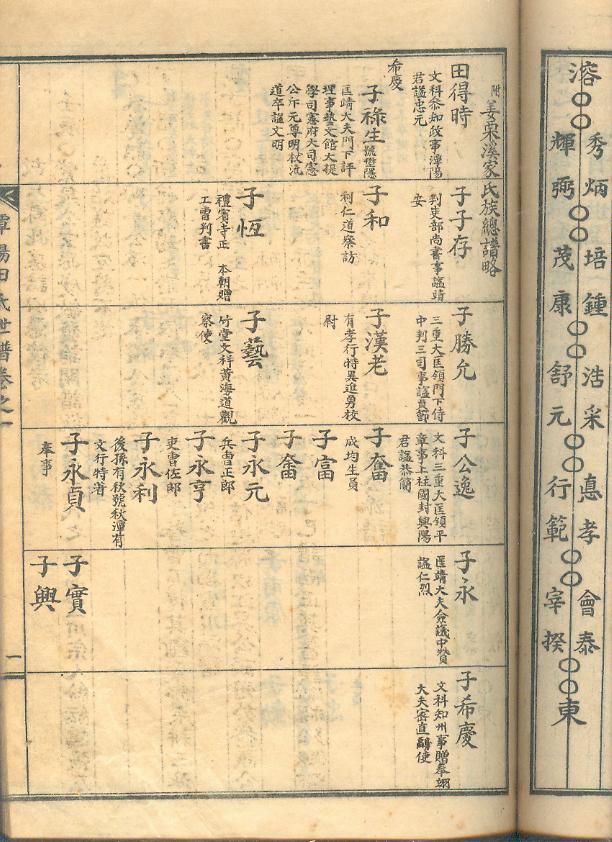 溶○○
秀炳○○培鍾○○浩采○○憙孝○○會泰○○
輝弼 茂康 舒元 行範 宰揆
東
附 姜栗溪家氏族總譜略
田得時
文科參知政事潭陽
君諡忠元
子子存
判吏部尙書事諡靖
安
子勝允
三重大匡領門下侍
中判三司事諡
子公逸
文科三重大匡領平
章事上柱國封興陽
君諡恭簡
子永
匡靖大夫僉議中贊
諡仁烈
子希慶
文科知州事贈奉翊
大夫密直副使
希慶
子祿生 號壄隱
匡靖大夫門下評
理事藝文館大提
學司憲府大司憲
公斥元尊明杖流
道卒諡文明
子和
利仁道察訪
子漢老
有孝行特異進勇校
尉
子奮
成均生員
子富
子畬
子永元
兵曺正郎
子永亨
吏曺佐郎
子永利
後孫有秋號秋潭有
文行特著
子永貞
奉事
子實
子興
子恆
禮賓寺正 本朝贈
工曺判書
子藝
竹堂文科黃海道觀
察使
潭陽田氏世譜卷之一
一